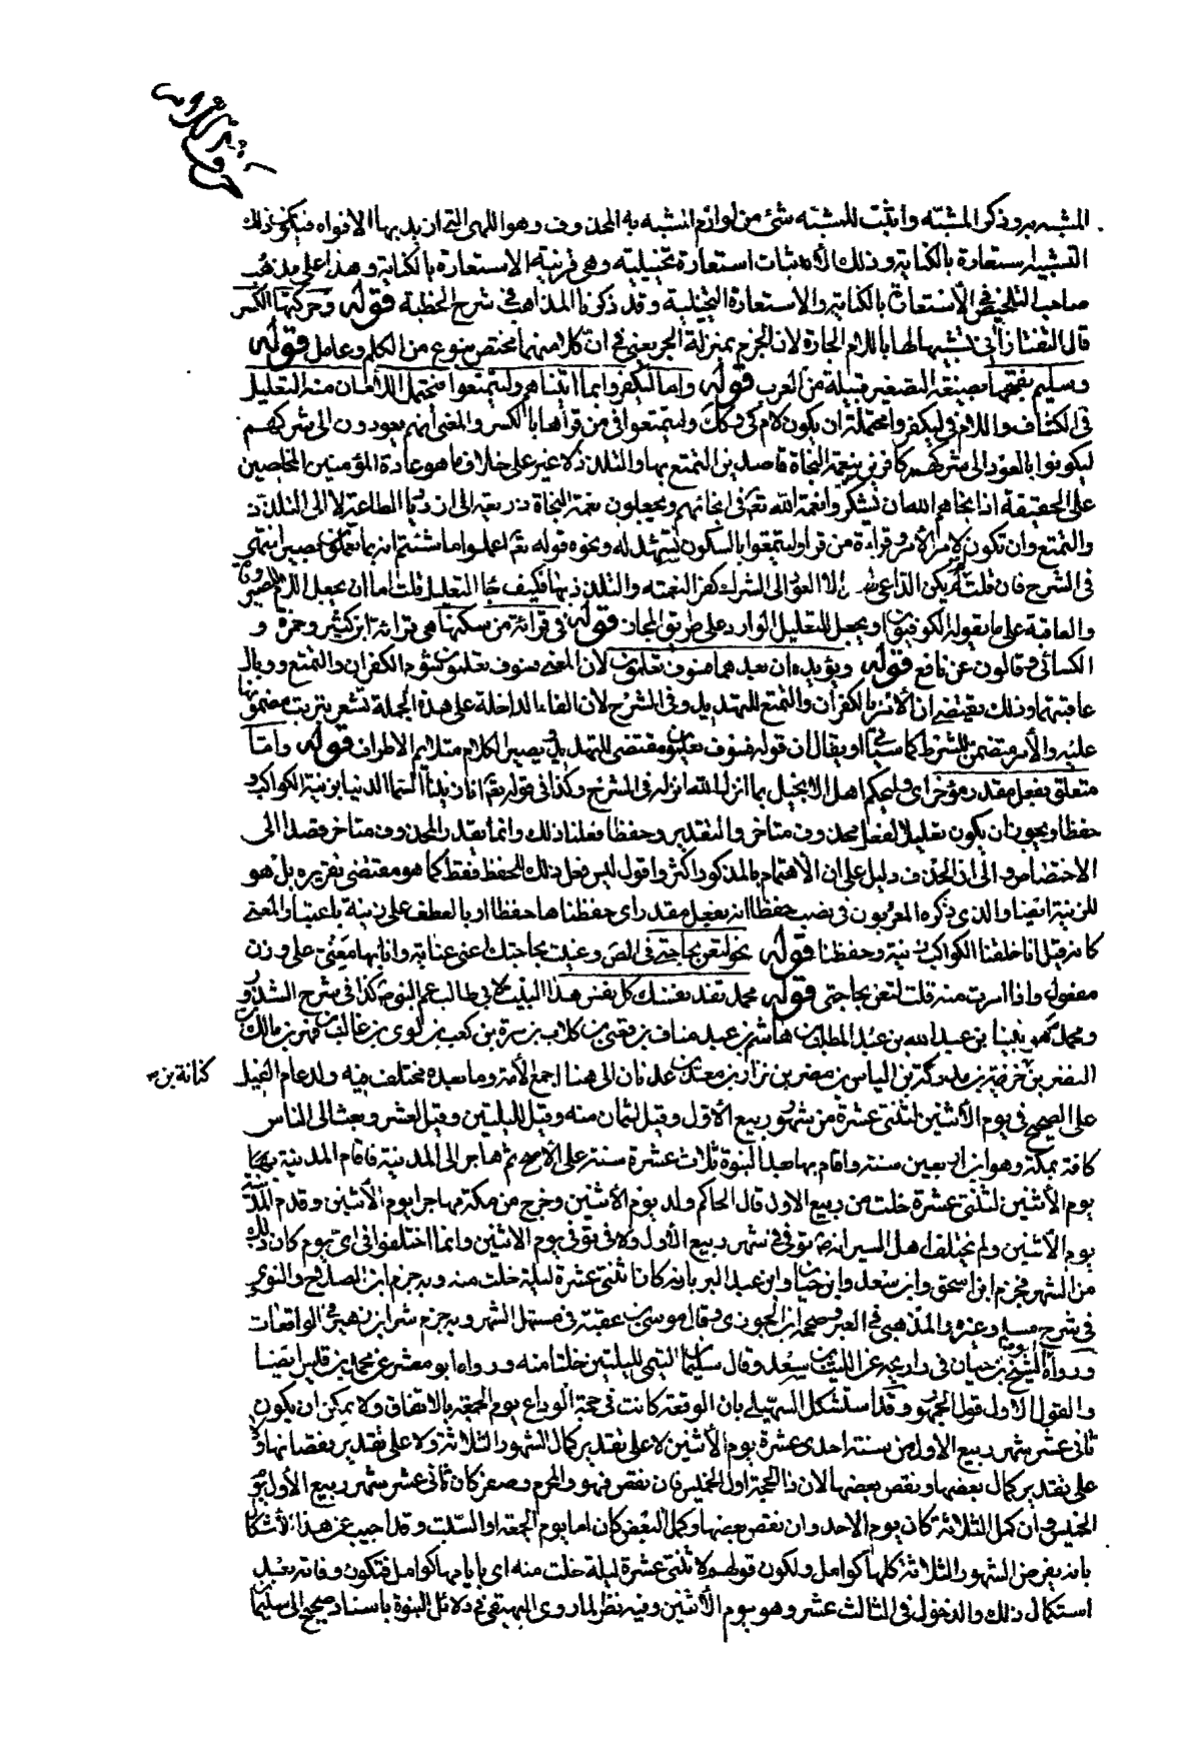 حروف الجزم
المشبه به وذكر المشبه واثبت للمشبه شئ من لوازم المشبه به المحذوف وهو اللهى التى ازيد بها الافواه فيكون ذلك
التشبيه استعارة بالكناية وذلك الاثبات استعارة تخييلية وهى قرينة الاستعارة بالكناية وهذا على مذهب
صاحب التلخيص فى الاستعارة بالكناية والاستعارة التخييلية وقد ذكرنا المذاهب فى شرح الخطبة قوله وحركتها الكسر
قال التفتازانى تشبيها لها باللام الجارة لان الجزم بمنزلة الجر يعنى فى ان كلا منهما مختص بنوع من الكلم وعامل قوله
وسليم بفتحها بصيغة التصغير قبيلة من العرب قوله واما ليكفروا بما اتيناهم وليتمتعوا فيحتمل اللامان منه التعليل
فى الكشاف واللام فى ليكفروا محتملة ان يكون لام كى وكذلك وليتمتعوا فى من قرأها بالكسر والمعنى انهم يعودون الى شركهم
ليكونوا بالعود الى شركهم كافرين بنعمة النجاة قاصدين التمتع بها والتلذذ لا غير على خلاف ما هو عادة المؤمنين المخلصين
على الحقيقة اذا انجاهم الله ان يشكروا نعمة الله تعالى فى انجائهم ويجعلون نعمة النجاة ذريعة الى ازدياد الطاعة لا الى التلذذ
والتمتع وان تكون لام الامر وقراءة من قرأ وليتمتعوا بالسكون تشهد له ونحوه قوله تعالى اعملوا ما شئتم انه بما تعملون بصير انتهى
فى الشرح فان قلت لم يكن الداعى الى العود الى الشرك كفر النعمة والتلذذ بها فكيف جاء التعليل قلت اما ان يجعل اللام للصيرورة
والعاقبة على ما يقوله الكوفيون او يجعل للتعليل الوارد على طريق المجاز قوله فى قراءة من سكنها هى قراءة ابن كثير وحمزة و
الكسائى وقالون عن نافع قوله ويؤيده ان بعدهما فسوف تعلمون لان المعنى سوف تعلمون شؤم الكفران والتمتع ووبال
عاقبتهما وذلك يقتضى ان الامر بالكفران والتمتع للتهديد وفى الشرح لان الفاء الداخلة على هذه الجملة تشعر بترتب مضمونها
عليه والامر متضمن للشرط كما سيأتى او يقال ان قوله فسوف تعلمون مقتضى للتهديد فيصير الكلام متلائم الاطراف قوله واما
متعلق بفعل مقدر مؤخر اى وليحكم اهل الانجيل بما انزل الله انزله فى الشرح وكذا فى قوله تعالى انا زينا السماء الدنيا بزينة الكواكب و
حفظا ويجوز ان يكون تعليلا لفعل محذوف متاخر والتقدير وحفظا فعلنا ذلك وانما يقدر المحذوف متاخر قصدا الى
الاختصاص والى ان الحذف دليل على ان الاهتمام بالمذكور اكثر واقول ليس فعل ذلك للحفظ فقط كما هو مقتضى تقريره بل هو
للزينة ايضا والذى ذكره المعربون فى نصب حفظا انه بفعل مقدر اى حفظناها حفظا او بالعطف على زينة باعتبار المعنى
كانه قيل انا خلقنا الكواكب زينة وحفظنا قوله نحو لتعن بحاجتى فى الص وعنيت بحاجتك اعنى عناية وانا بها معنى على وزن
مفعول واذا امرت منه قلت لتعن بحاجتى قوله محمد تفد نفسك كل نفس هذا البيت لابى طالب عم النبى كذا فى شرح الشذور
ومحمد هو نبينا بن عبد الله بن عبد المطلب بن هاشم بن عبد مناف بن قصى بن كلاب بن مرة بن كعب بن لوى بن غالب بن فهر بن مالك بن
النضر بن خزيمة بن مدركة بن الياس بن مضر بن نزار بن معد بن عدنان الى هنا اجمع الامة وما بعده مختلف فيه ولد عام الفيل
كنانة بن صح
على الصحيح فى يوم الاثنين لثنتى عشرة من شهر ربيع الاول وقيل لثمان منه وقيل لليلتين وقيل لعشر وبعث الى الناس
كافة بمكة وهو ابن اربعين سنة واقام بها بعد النبوة ثلاث عشرة سنة على الاصح ثم هاجر الى المدينة فاقام المدينة
يوم الاثنين لثنتى عشرة خلت من ربيع الاول قال الحاكم ولد يوم الاثنين وخرج من مكة مهاجرا يوم الاثنين وقدم المدينة
يوم الاثنين ولم يختلف اهل السير انه توفى فى شهر ربيع الاول ولا فى توفى يوم الاثنين وانما اختلفوا فى اى يوم كان ذلك
من الشهر فجزم ابن اسحق وابن سعد وابن حبان وابن عبد البر بانه كان لاثنتى عشرة ليلة خلت منه وبه جزم ابن الصلاح والنووى
فى شرح مسلم وغيره والذهبى فى العبر وصححه ابن الجوزى وقال موسى بن عقبة فى مستهل الشهر وبه جزم ابن زهير فى الواقعات
ورواه ابو الشيخ بن حيان فى تاريخه عن الليث بن سعد وقال سليمان التيمى لليلتين خلتا منه ورواه ابو معشر عن محمد بن قيس ايضا
والقول الاول قول الجمهور وقد استشكل السهيلى بان الوقعة كانت فى حجة الوداع يوم الجمعة بالاتفاق ولا يمكن ان يكون
ثانى عشر شهر ربيع الاول من سنة احدى عشرة يوم الاثنين لا على تقدير كمال الشهور الثلاثة ولا على تقدير نقصانها ولا
على تقدير كمال بعضها ونقص بعضها لان ذا الحجة اول الخميس فان نقص فهو والمحرم وصفر كان ثانى عشر شهر ربيع الاول يوم
الخميس وان كمل الثلاثة كان يوم الاحد وان نقص بعضها وكمل البعض كان اما يوم الجمعة او السبت وقد اجيب عن هذا الاشكال
بانه يفرض الشهور الثلاثة كلها كوامل ولكون قولهم لاثنتى عشرة ليلة خلت منه اى بايامها كوامل فتكون وفاته بعد
استكمال ذلك والدخول فى الثالث عشر وهو يوم الاثنين وفيه نظر لما روى البيهقى فى دلائل النبوة باسناد صحيح الى سليمان